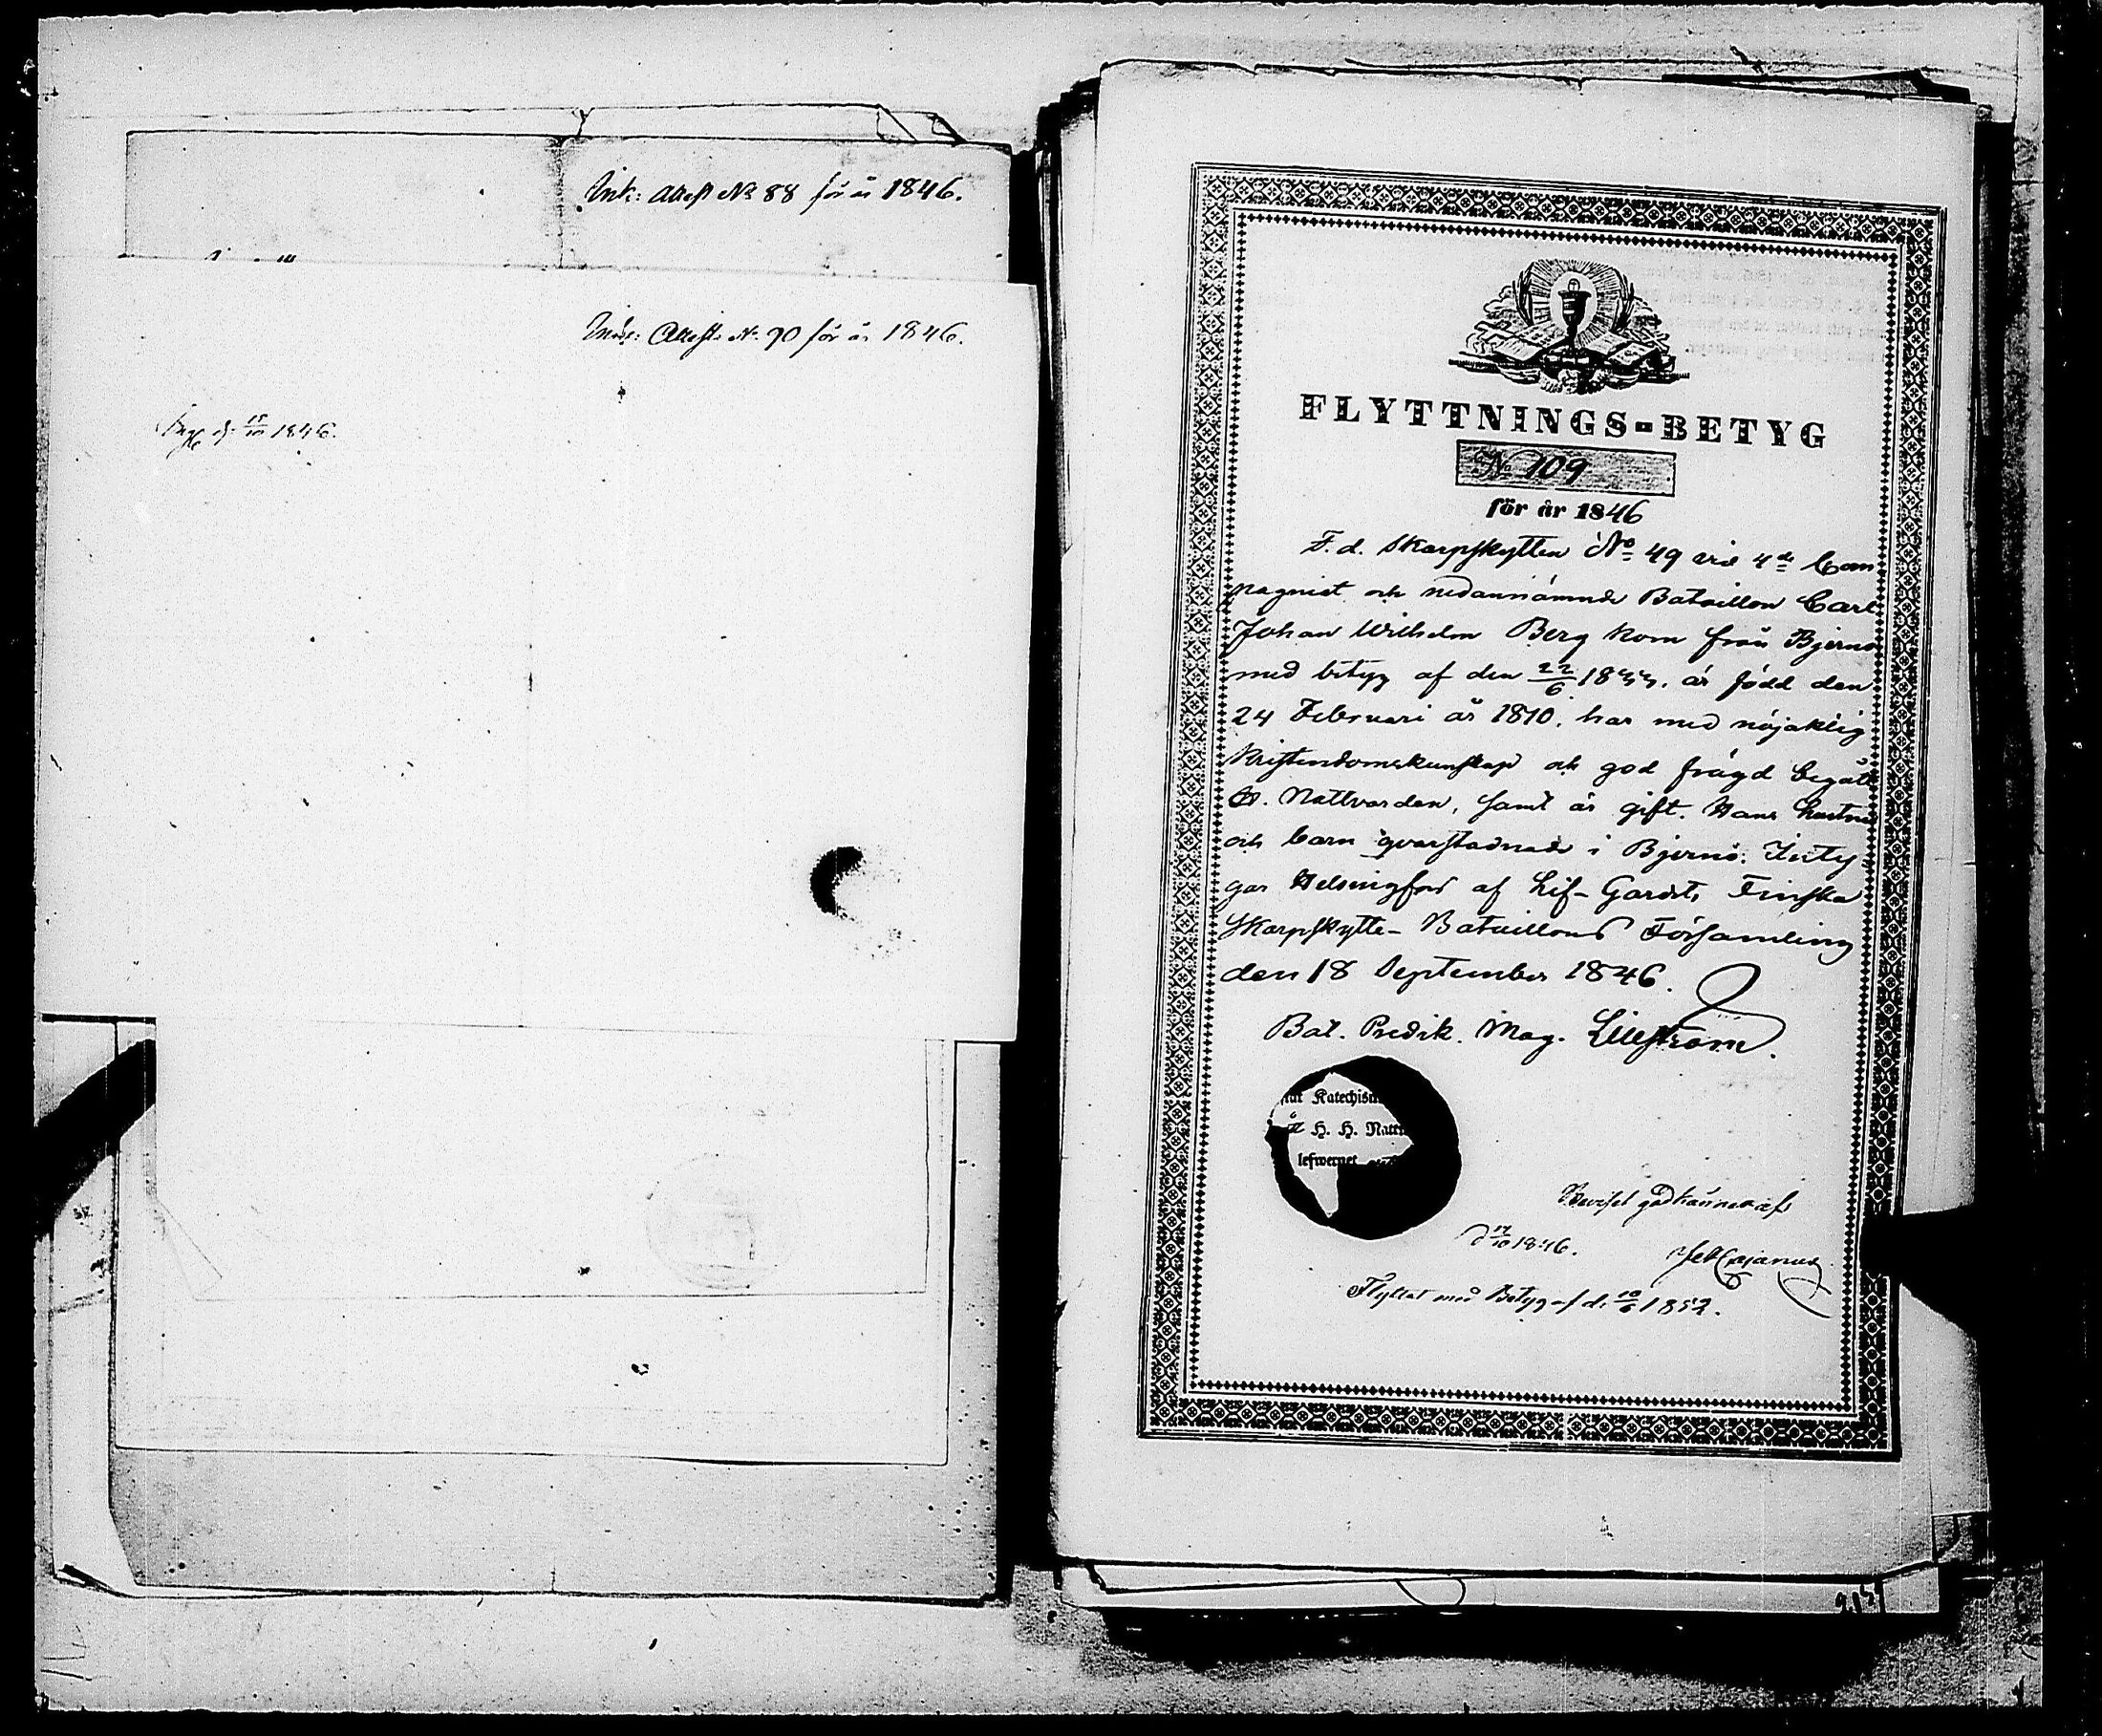 Ink: Attest No 88 för år 1846.
Ink: Attest No 90 för år 1846.
d. 15/10 1846.
FLYTTNINGS-BETYG
No 109
för år 1846
F. d. Skarpskytten No 49 vid 4de Com
pagniet och nedannämnde Bataillon Carl
Johan Wilhelm Berg kom från Bjerno
med betyg af den 22/6 1833. är född den
24 Februari år 1810. har med nöjaktig
Kristendomskunskap och god frägd begått
H. Nattvarden, samt är gift. Hans hustru
och barn qvarstadnade i Bjernå. Inty-
gar Helsingfors af Lif-Gardets Finska
Skarpskytte-Bataillons Församling
den 18 September 1846.
Bat. Predik. Mag. Lilleström.
Katechis
H. H. Natt
lefwernet
Beviset godkännes af
d 17/10 1846.
Cajanus
Flyttat med Betyg af d. 10/6 1852.